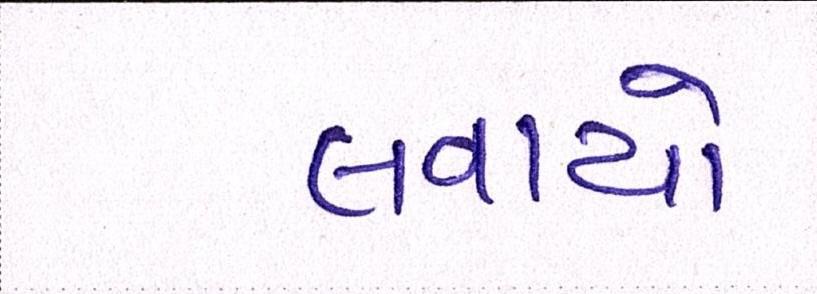 લવાયો